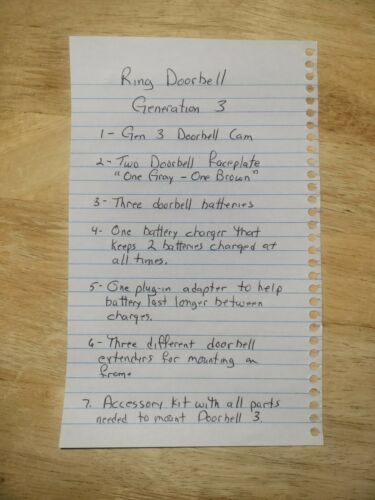 Ring Doorbell
Generation 3
1 - Gen 3 Doorbell Cam
2 - Two Doorbell Faceplate
"One Gray - One Brown"
3 - Three doorbell batteries
4 - One battery charger that
keeps 2 batteries charged at
all times.
5 - One plug-in adapter to help
battery last longer between
charges.
6 - Three different doorbell
extenders for mounting on
frame
7. Accessory kit with all parts
needed to mount Doorbell 3.